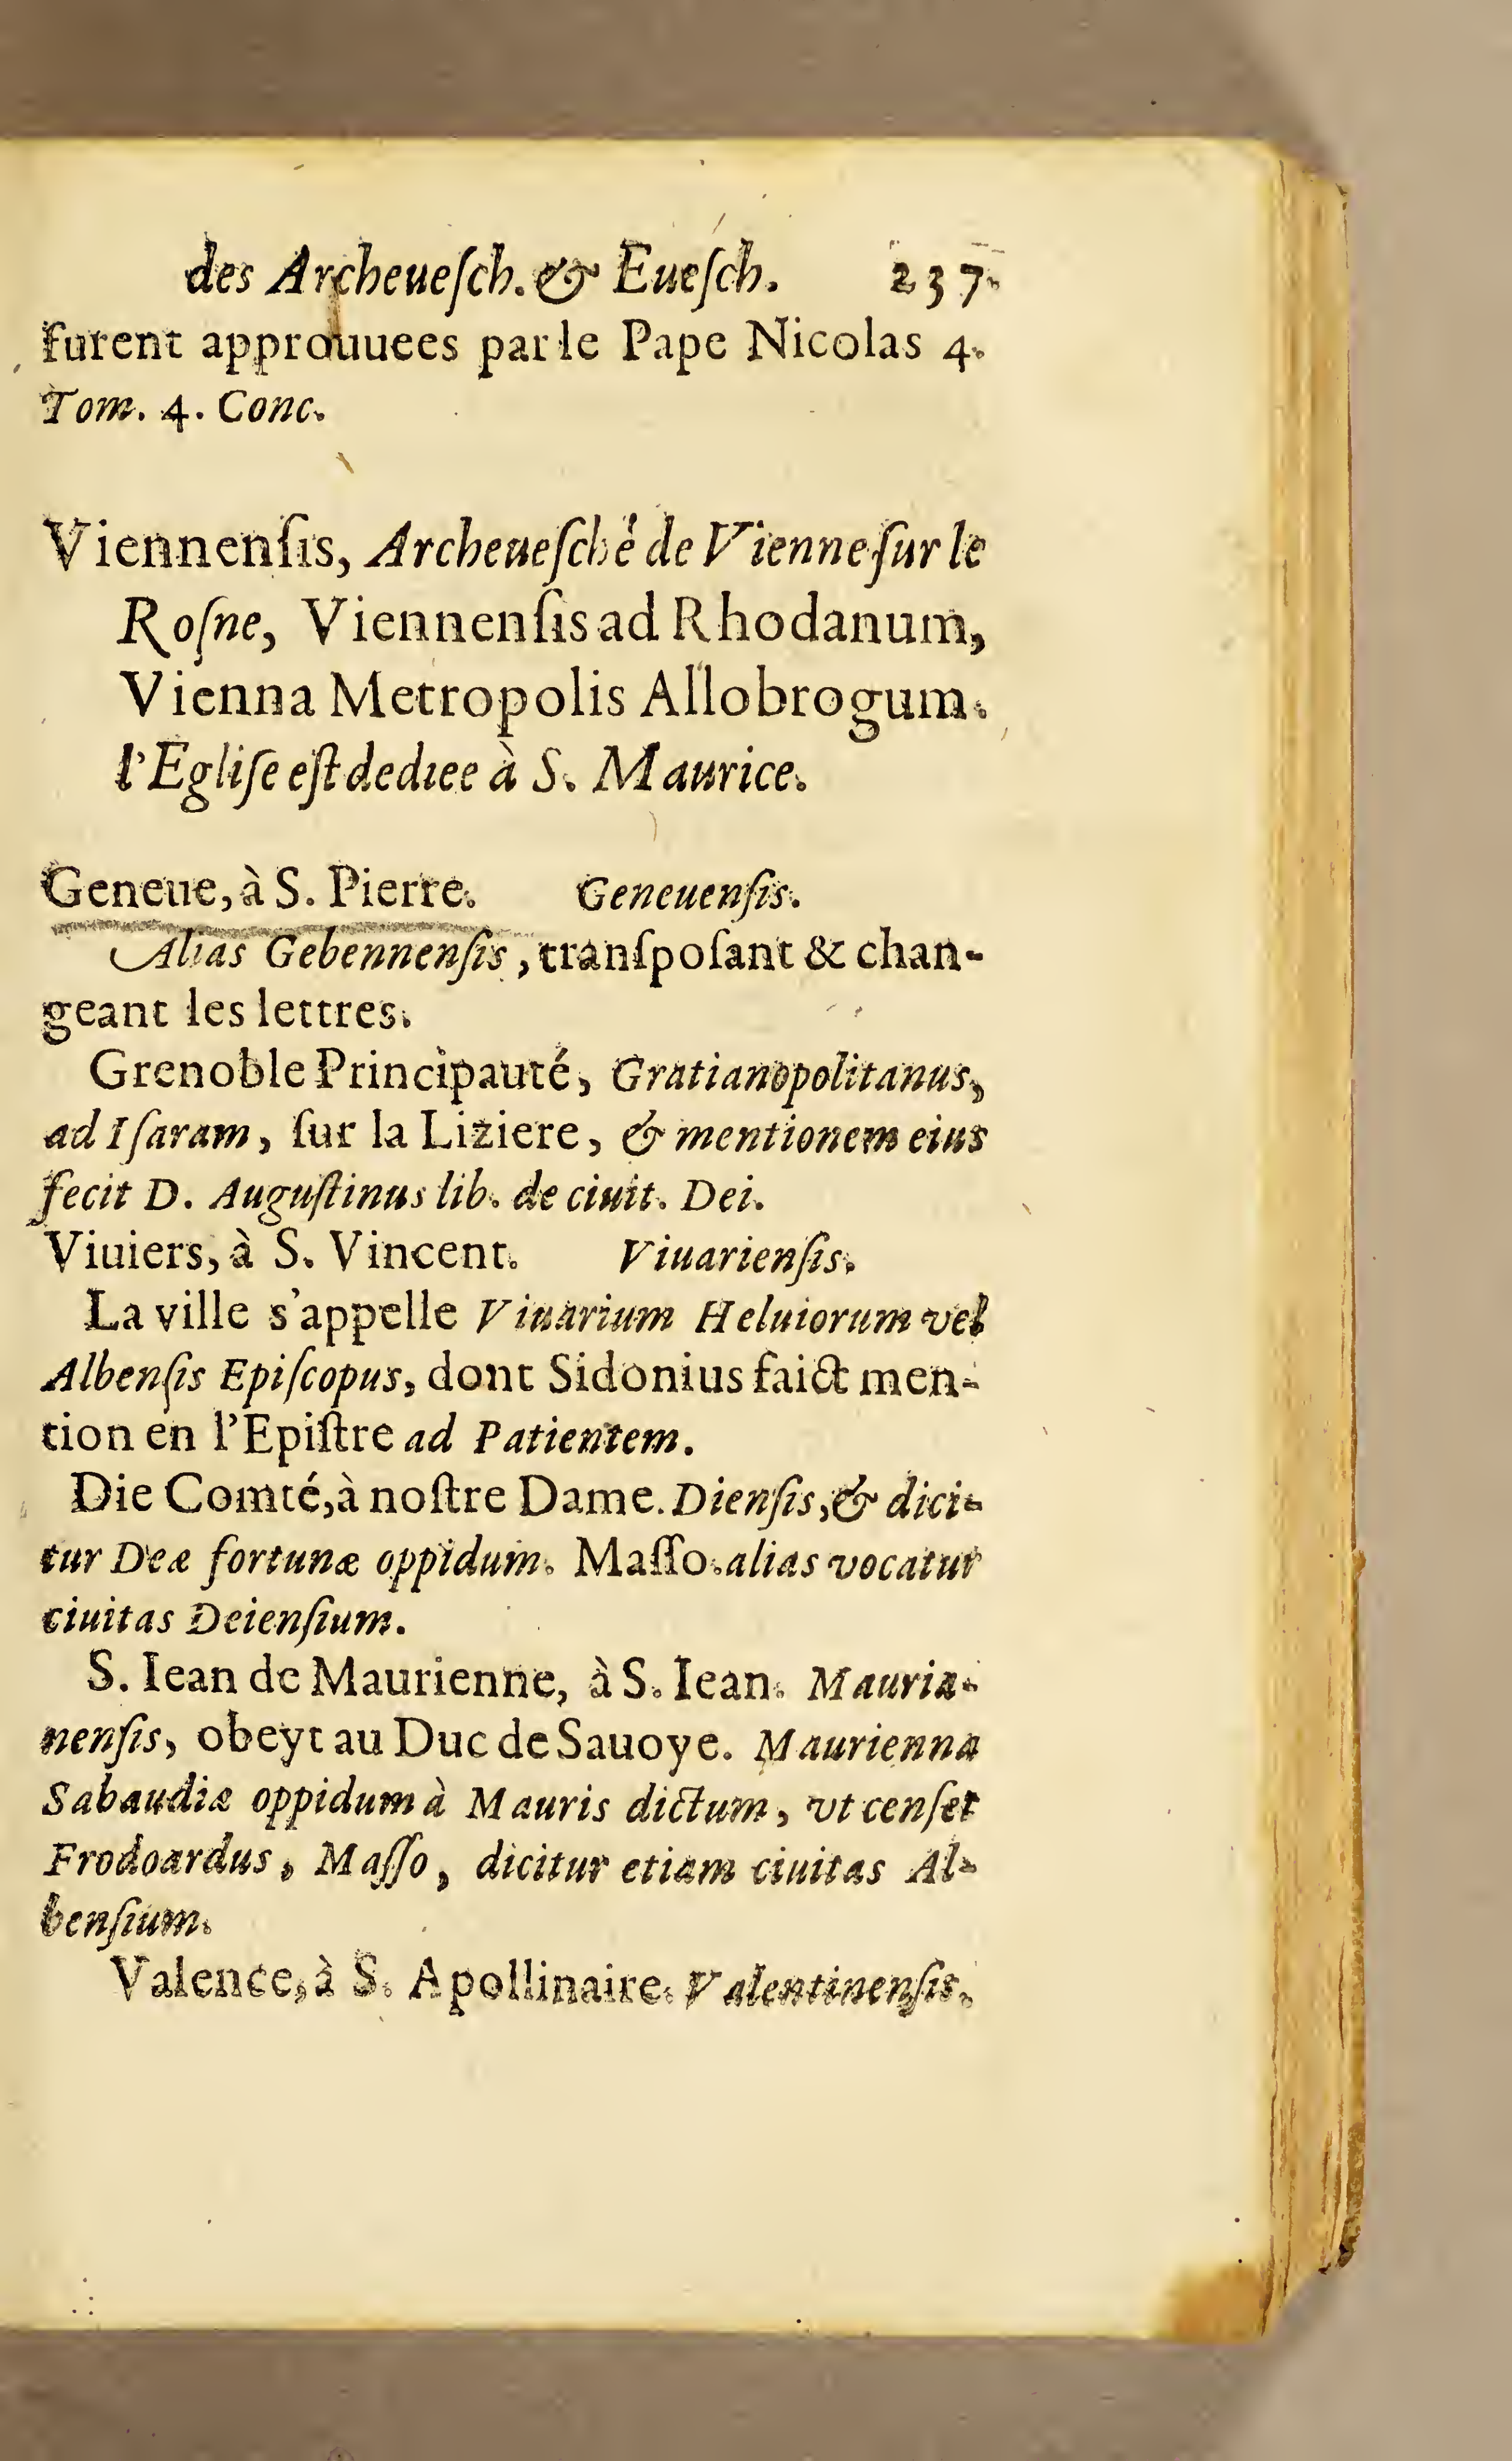 des Archeueſch. & Eueſch. 237.
furent approuuees par le Pape Nicolas 4.
Tom. 4. Conc.
Viennenſis, Archeueſché de Vienne ſur le
Roſne, Viennenſis ad Rhodanum,
Vienna Metropolis Allobrogum.
l'Egliſe eſt dediee à S. Maurice.
Geneue, à S. Pierre. Geneuenſis.
Alias Gebennenſis, tranſpoſant & chan-
geant les lettres.
Grenoble Principauté, Gratianopolitanus,
ad Iſaram, ſur la Liziere, & mentionem eius
fecit D. Auguſtinus lib. de ciuit. Dei.
Viuiers, à S. Vincent. Viuarienſis.
La ville s'appelle Viuarium Heluiorum vel
Albenſis Epiſcopus, dont Sidonius faict men-
tion en l'Epiſtre ad Patientem.
Die Comté, à noſtre Dame. Dienſis, & dici-
tur Deæ fortunæ oppidum. Maſſo. alias vocatur
ciuitas Deienſium.
S. Iean de Maurienne, à S. Iean. Mauria-
nenſis, obeyt au Duc de Sauoye. Maurienna
Sabaudiæ oppidum à Mauris dictum, vt cenſet
Frodoardus, Maſſo, dicitur etiam ciuitas Al-
benſium.
Valence, à S. Apollinaire. Valentinenſis.